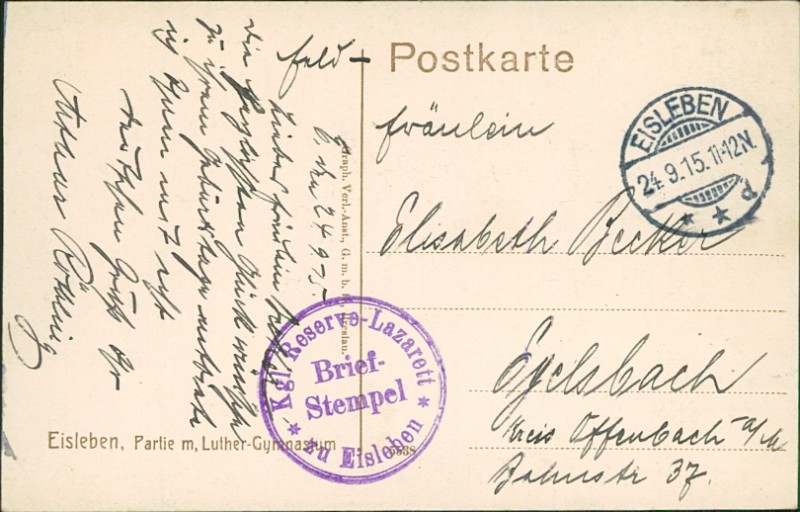 Feld-
Postkarte
E. den 24.9.15.
Liebes Fräulein Becker
Die herzlichsten Glückwünsche
zu Ihrem Geburtstage
Ihnen mit
Gruß Ihr
Arthur
Fräulein
Elisabeth Becker
Egelsbach
Kreis Offenbach a/M
Bahnstr 37.
EISLEBEN
24.9.15.11-12N.
* * d
Kgl. Reserve-Lazarett
Brief-
Stempel
* zu Eisleben *
Graph. Verl.-Anst., G. m. b. H., Breslau.
Eisleben, Partie m, Luther-Gymnasium